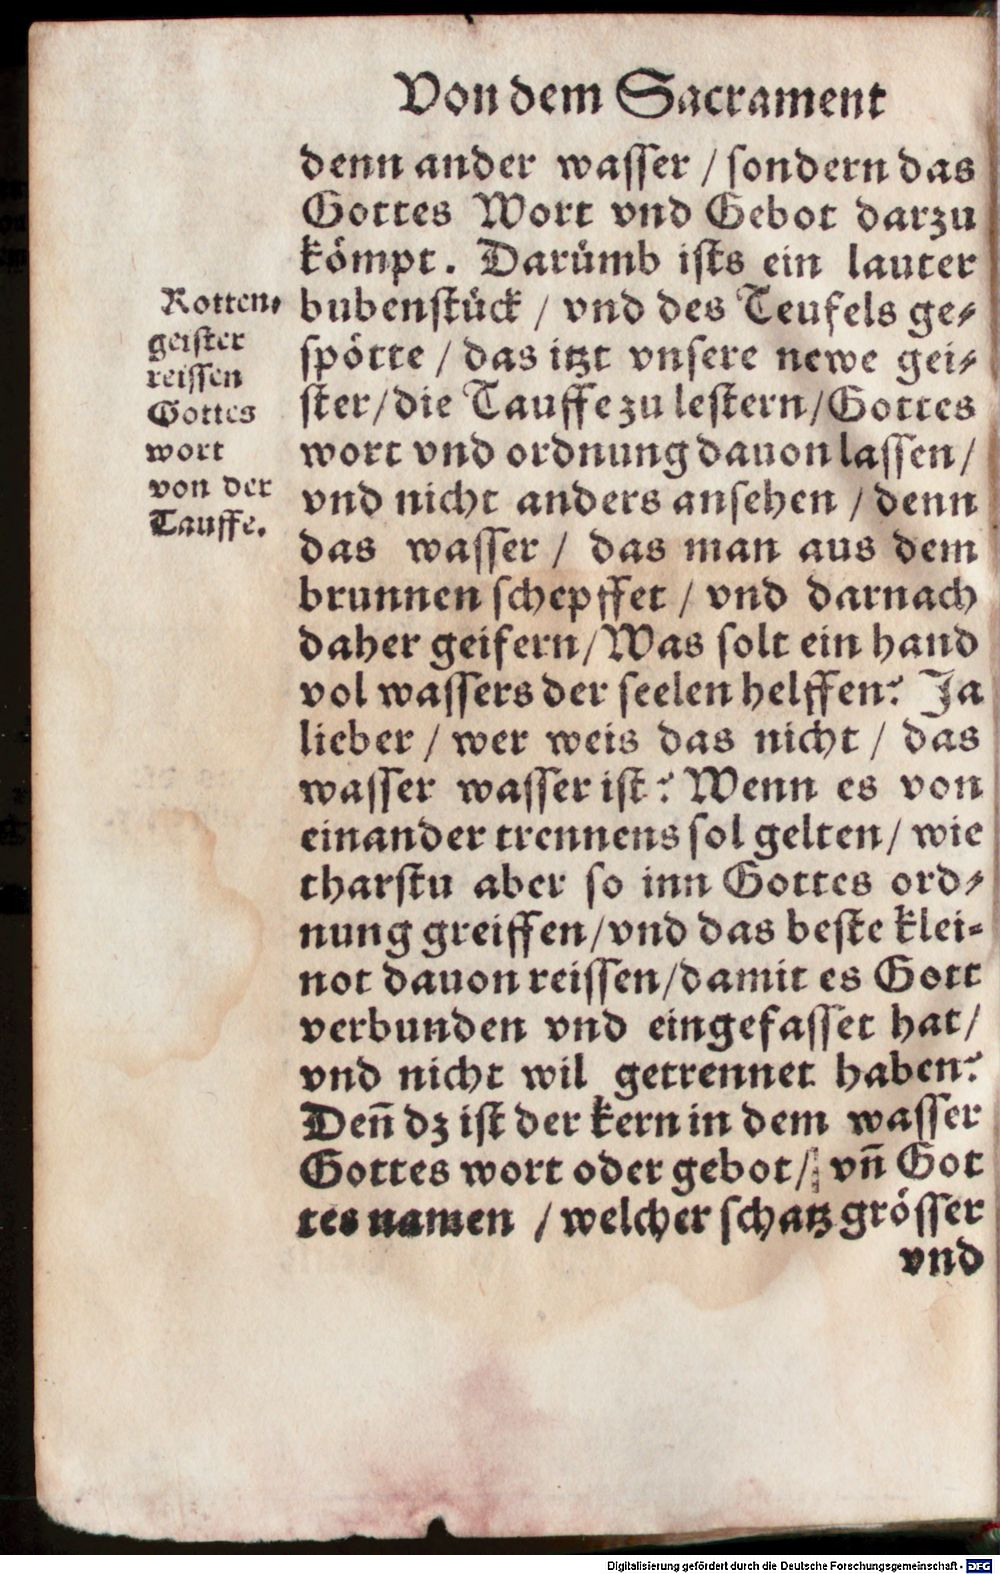 Von dem Sacrament
denn ander wasser / sondern das
Gottes Wort vnd Gebot darzu
kömpt. Darümb ists ein lauter
bubenstück / vnd des Teufels ge-
spötte / das itzt vnsere newe gei-
ster / die Tauffe zu lestern / Gottes
wort vnd ordnung dauon lassen /
vnd nicht anders ansehen / denn
das wasser / das man aus dem
brunnen schepffet / vnd darnach
daher geifern / Was solt ein hand
vol wassers der seelen helffen? Ja
lieber / wer weis das nicht / das
wasser wasser ist? Wenn es von
einander trennens sol gelten / wie
tharstu aber so inn Gottes ord-
nung greiffen / vnd das beste klei-
not dauon reissen / damit es Gott
verbunden vnd eingefasset hat /
vnd nicht wil getrennet haben?
Deñ dz ist der kern in dem wasser
Gottes wort oder gebot / vñ Got
tes namen / welcher schatz grösser
vnd
Rotten-
geister
reissen
Gottes
wort
von der
Tauffe.
Digitalisierung gefördert durch die Deutsche Forschungsgemeinschaft - DFG